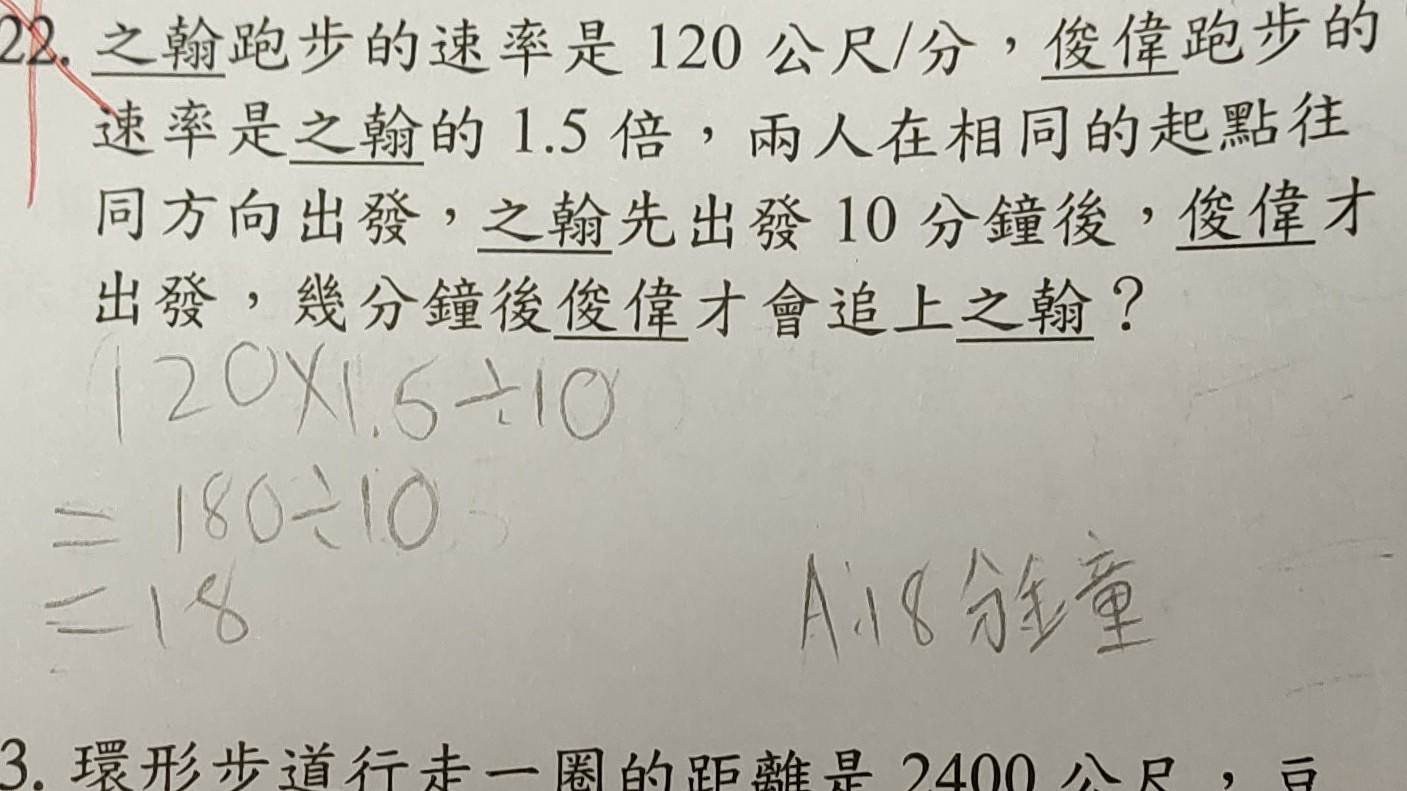 22. 之翰跑步的速率是 120 公尺/分，俊偉跑步的
速率是之翰的 1.5 倍，兩人在相同的起點往
同方向出發，之翰先出發 10 分鐘後，俊偉才
出發，幾分鐘後俊偉才會追上之翰？
120×1.5÷10
=180÷10
=18
A:18分鐘
3. 環形步道行走一圈的距離是 2400 公尺，